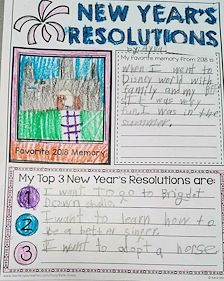 NEW YEAR'S
RESOLUTIONS
by:
My favorite memory from 2018 is
When I went to
Disney world
family and my
it was very
fun. I was in the
summer.
Favorite 2018 Memory
My Top 3 New Year's Resolutions are:
1 I want to go to Bright
Down studio.
2 I want to learn how to
be a better singer.
3 I want to adopt a horse